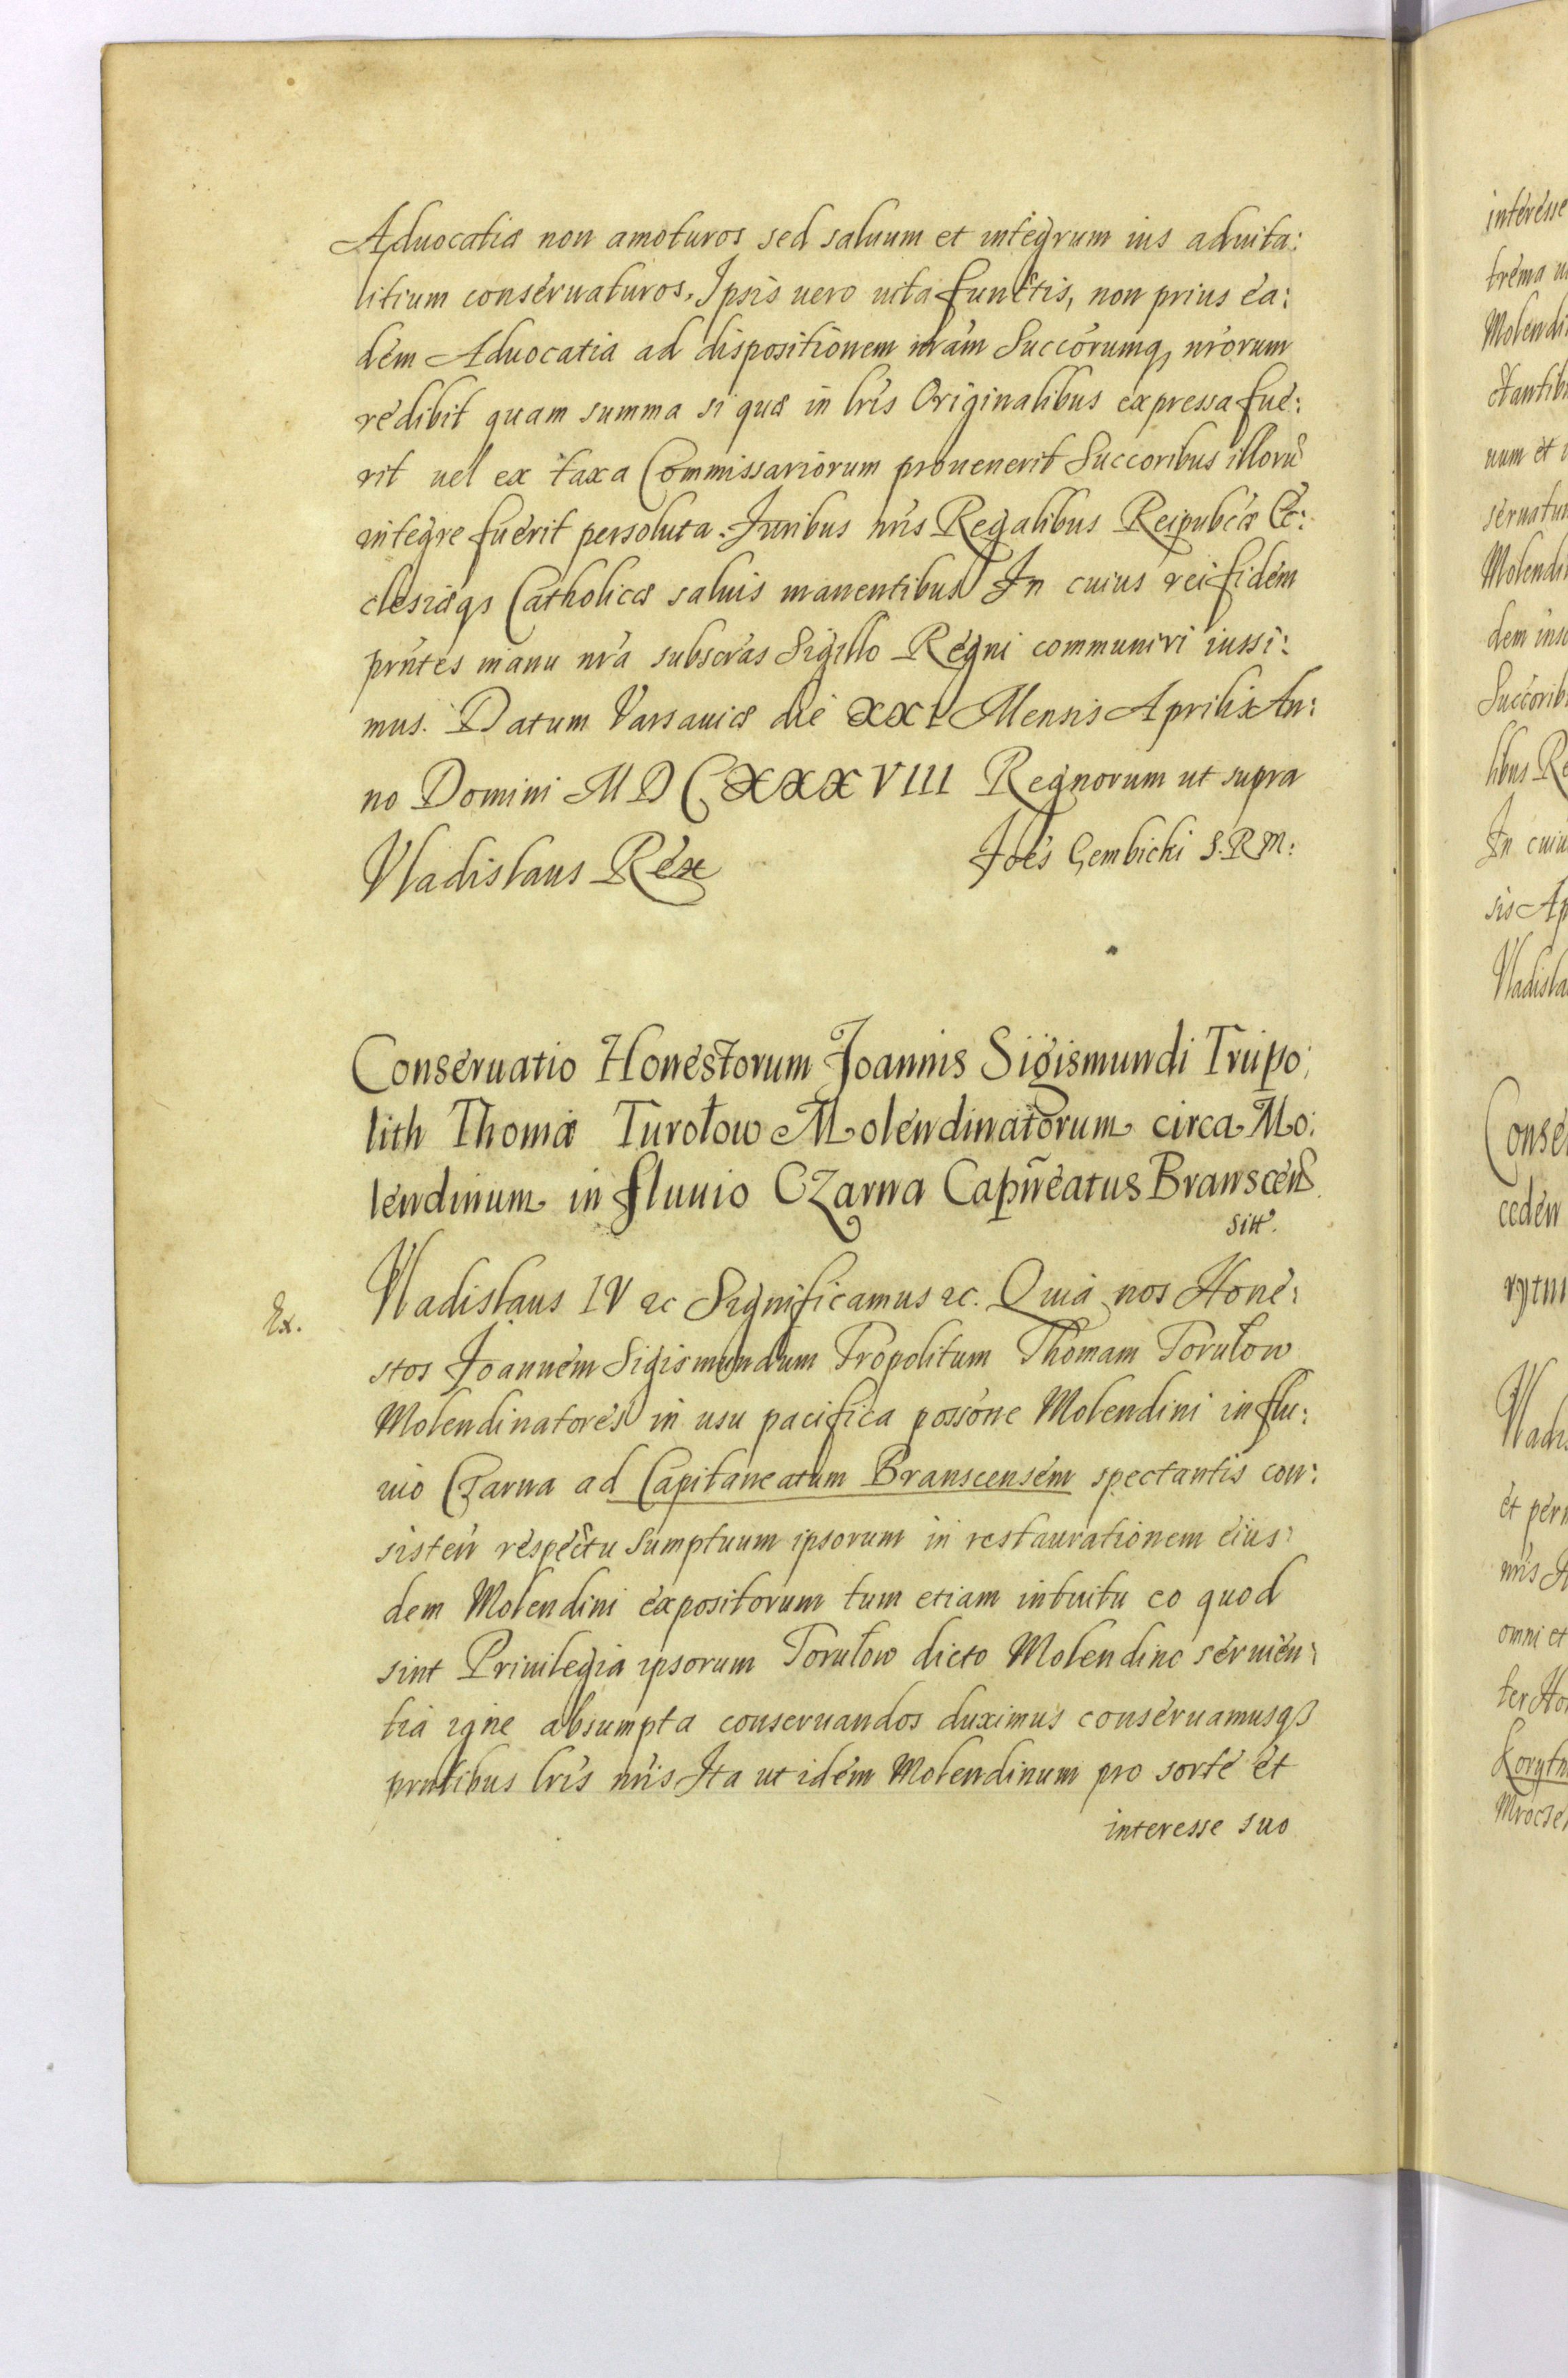 Aduocatiæ non amoturos sed saluum et integrum ius aduita:
litium conseruaturos. Ipsis uero uita functis, non prius ea:
dem Aduocatia ad dispositionem nrãm Succorumq, nrorum
redibit quam summa si quæ in lris Originalibus expressa fue:
rit uel ex taxa Commissariorum prouenerit Succoribus illorũ
integre fuerit persoluta. Iuribus nris Regalibus Reipubcæ Ec:
clesiæqs Catholicæ saluis manentibus In cuius rei fidem
prntes manu nra subscras Sigillo Regni communiri iussi:
mus. Datum Varsauiæ die XXI Mensis Aprilis An:
no Domini MDCXXXVIII Regnorum ut supra
Vladislaus Rex Joes Gembicki S.R.M:
Conseruatio Honestorum Joannis Sigismundi Trupo:
lith Thomæ Turołow Molendinatorum circa Mo:
lendinum in fluuio CZarna Capñeatus Branscen
sitt.
Ex.
Vladislaus IV ec Significamus ec. Quia nos Hone:
stos Joannem Sigismundum Tropolitum Thomam Torułow
Molendinatores in usu pacifica possone Molendini in flu:
uio Czarna ad Capitaneatum Branscensem spectantis con:
sisten respectu sumptuum ipsorum in restaurationem eius:
dem Molendini expositorum tum etiam intuitu eo quod
sint Priuilegia ipsorum Torułow dicto Molendino seruien:
tia igne absumpta conseruandos duximus conseruamusqs
prntibus lris nris Ita ut idem Molendinum pro sorte et
interesse suo